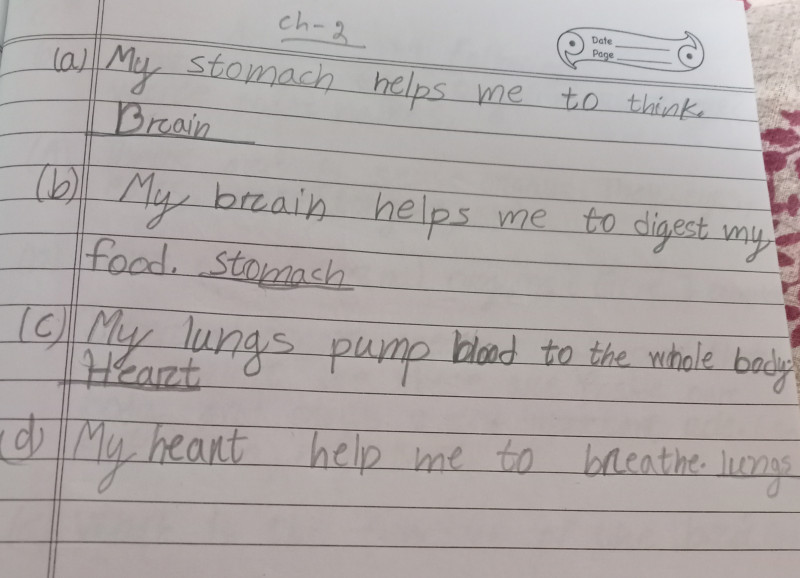 ch-2
Date
Page
(a) My stomach helps me to think.
Brain
(b) My brain helps me to digest my
food. stomach
(c) My lungs pump blood to the whole body.
Heart
(d) My heart help me to breathe. lungs